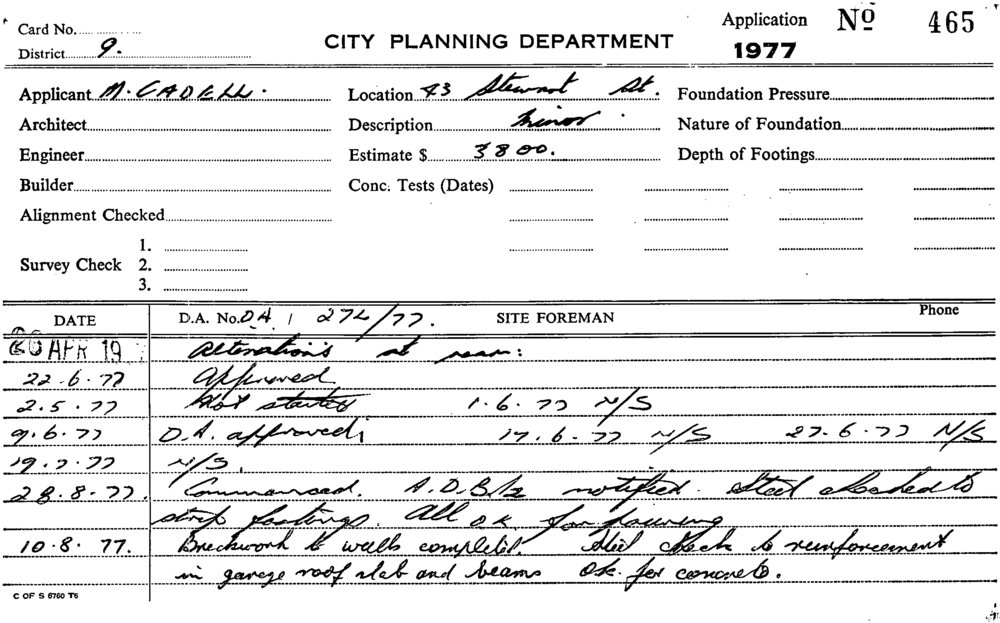 Card No.
District 9.
CITY PLANNING DEPARTMENT
Application No 465
1977
Applicant M. CADELL.
Location 43 Stewart St.
Foundation Pressure
Architect
Description Minor.
Nature of Foundation
Engineer
Estimate $ 3800.
Depth of Footings
Builder
Conc. Tests (Dates)
Alignment Checked
Survey Check
1.
2.
3.
DATE
D.A. No. DA / 274/77.
SITE FOREMAN
Phone
APR 19 Alterations at rear:
22.6.77 Approved
2.5.77 Not started 1.6.77 N/S
9.6.77 D.A. approved; 17.6.77 N/S 27.6.77 N/S
19.7.77 N/S.
28.8.77. Commenced. A.D.B. notified. Steel checked to
strip footings. All o.k. for pouring
10.8.77. Brickwork to walls complete. Steel check to reinforcement
in garage roof slab and beams ok. for concrete.
C OF S 6760 T6